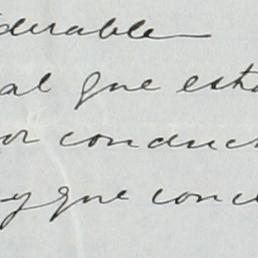 derable
al que esta
or conduc
y que conc